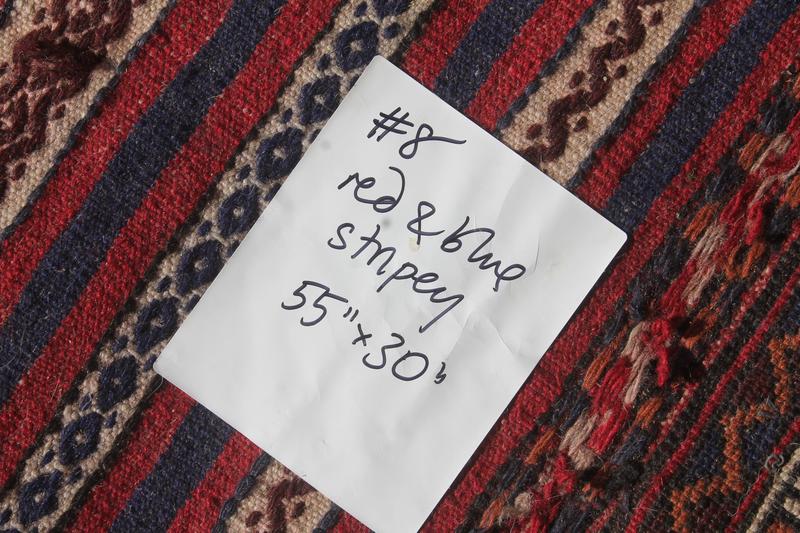 #8
red & blue
stripey
55" x 30"